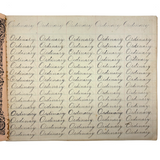 Ordinary Ordinary Ordinary Ordinary Ordinary
Ordinary Ordinary Ordinary Ordinary Ordinary
Ordinary Ordinary Ordinary Ordinary Ordinary
Ordinary Ordinary Ordinary Ordinary Ordinary
Ordinary Ordinary Ordinary Ordinary Ordinary
Ordinary Ordinary Ordinary Ordinary Ordinary
Ordinary Ordinary Ordinary Ordinary Ordinary
Ordinary Ordinary Ordinary Ordinary Ordinary
Ordinary Ordinary Ordinary Ordinary Ordinary
Ordinary Ordinary Ordinary Ordinary Ordinary
Ordinary Ordinary Ordinary Ordinary Ordinary
Ordinary Ordinary Ordinary Ordinary Ordinary
Ordinary Ordinary Ordinary Ordinary Ordinary
Ordinary Ordinary Ordinary Ordinary Ordinary